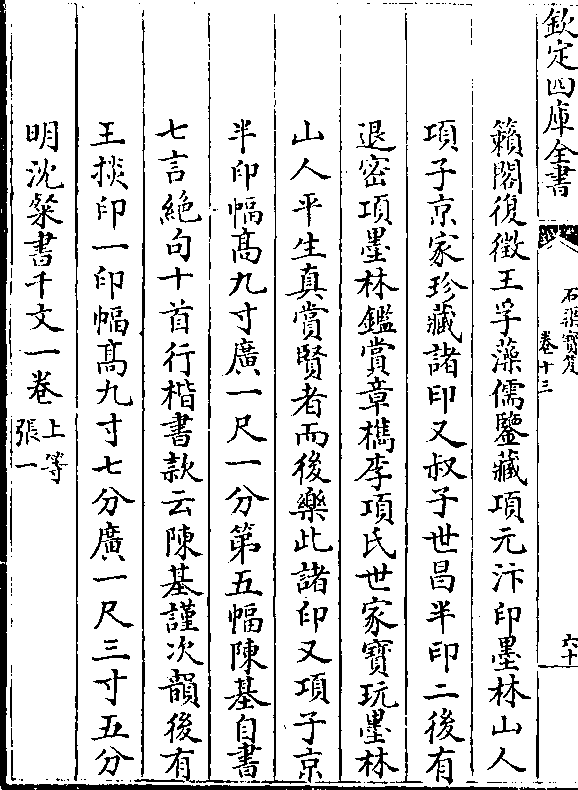 欽定四庫全書
石渠寳笈
卷十三
六十
籟閣復徵王孚藻儒鑒藏項元汴印墨林山人
項子京家珍藏諸印又叔子世昌半印二後有
退密項墨林鑑賞章檇李項氏世家寶玩墨林
山人平生真賞賢者而後樂此諸印又項子京
半印幅髙九寸廣一尺一分第五幅陳基自書
七言絶句十首行楷書款云陳基謹次韻後有
王掞印一印幅髙九寸七分廣一尺三寸五分
明沈粲書千文一卷上等
張一